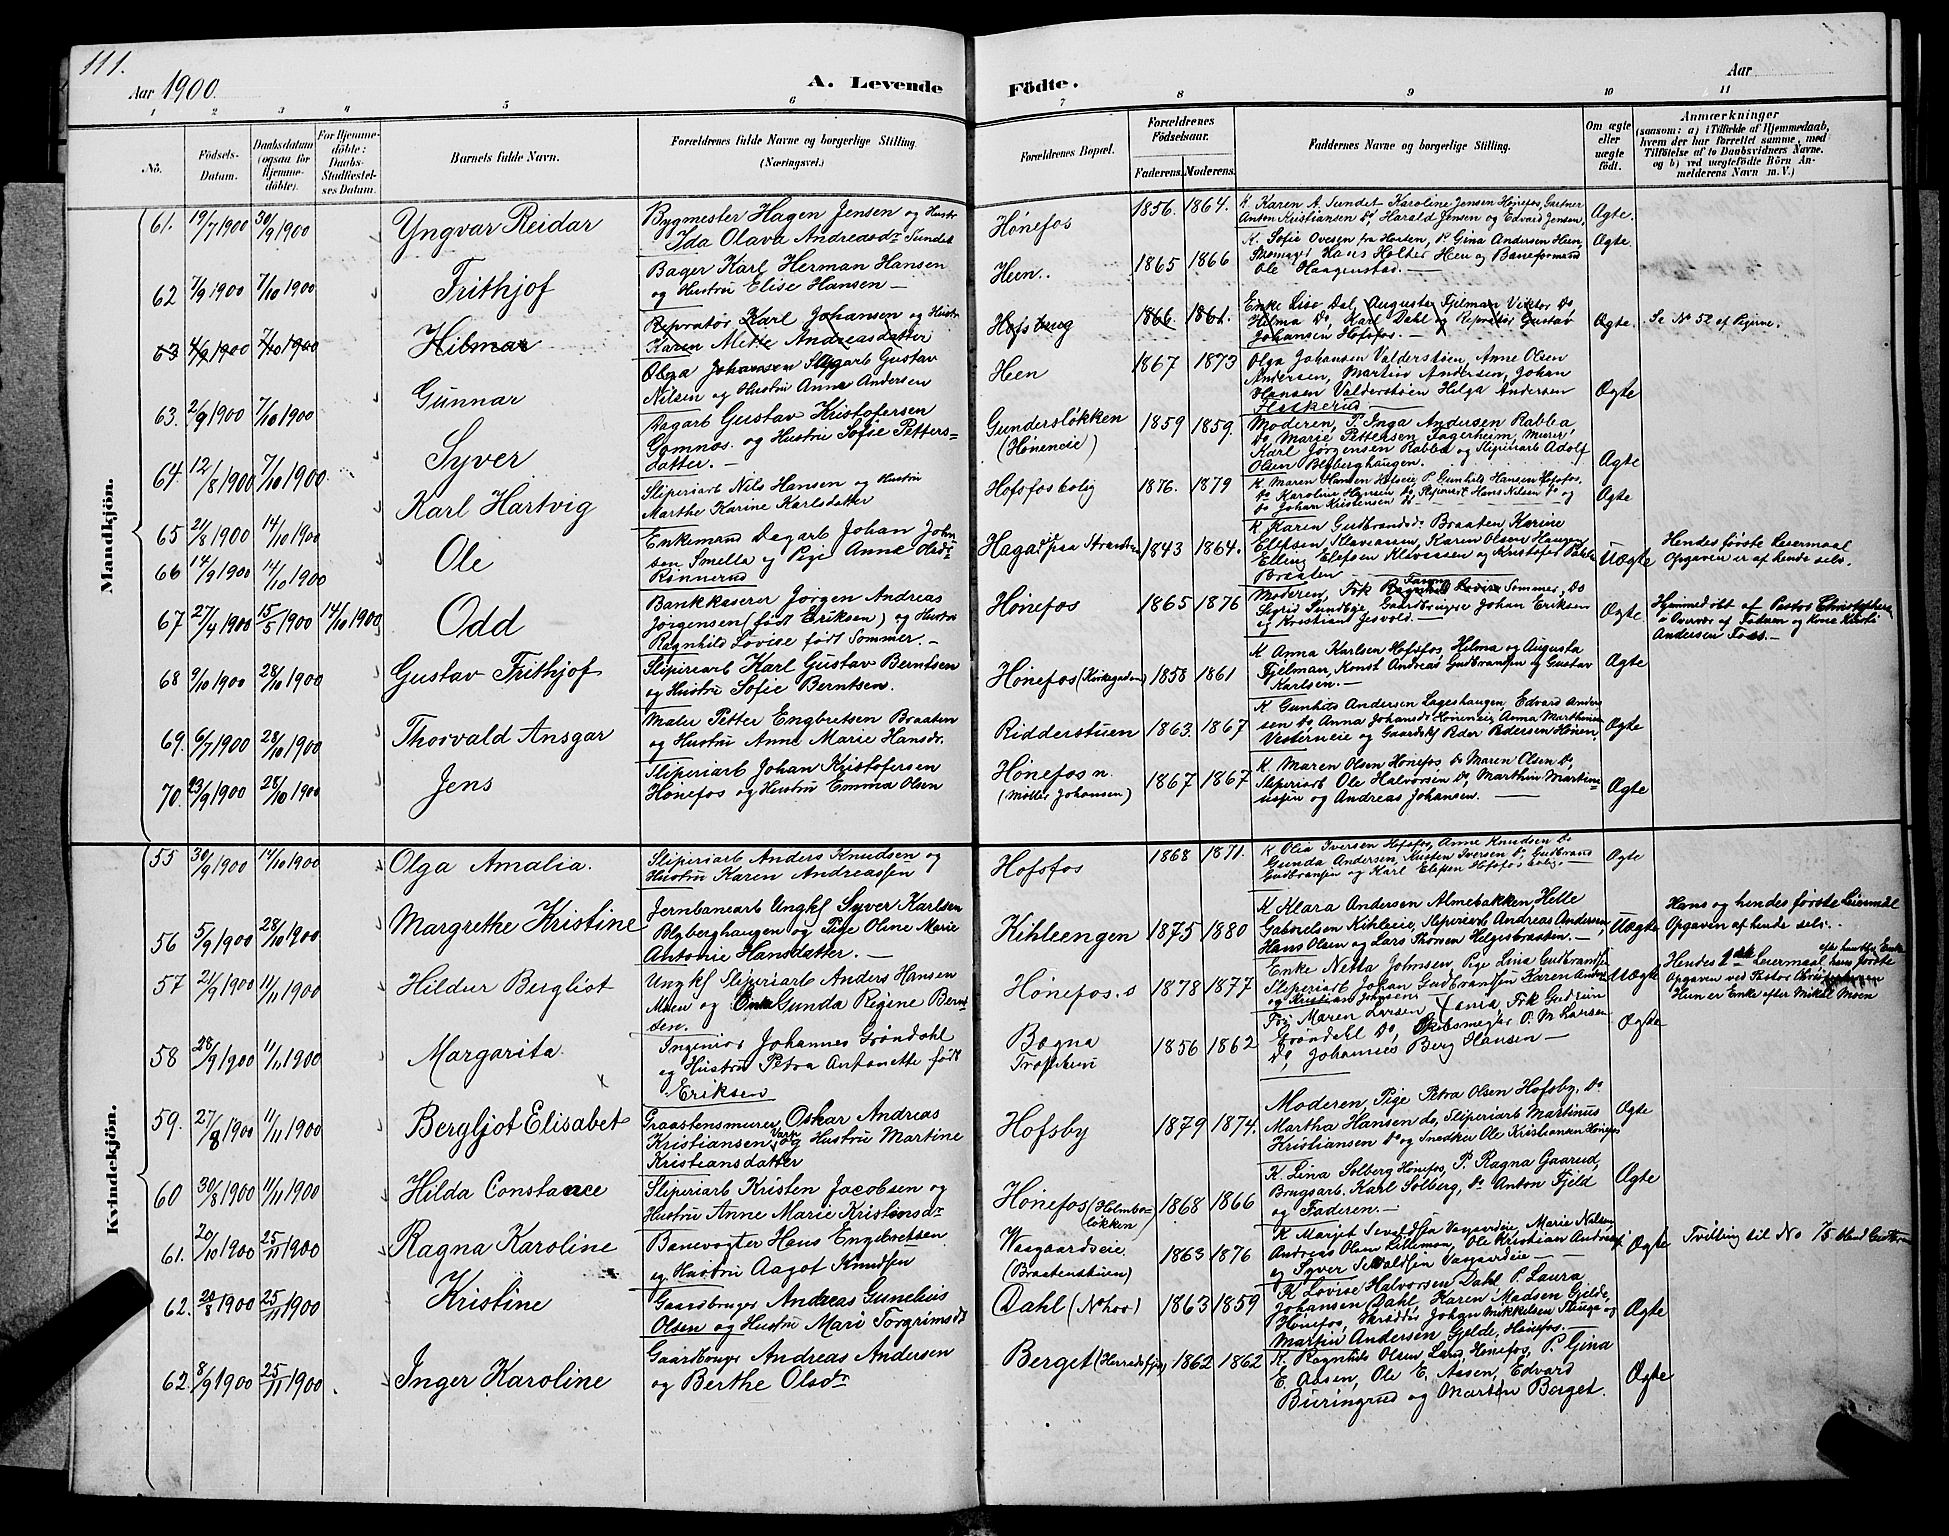 111.
Aar 1900.
A. Levende Födte.
Aar
1 2 3 4 5 6 7 8 9 10 11
No.
Födsels-Datum.
Daabsdatum (ogsaa for Hjemme-döbte).
For Hjemme-döbte: Daabs-Stadfæstel-ses Datum.
Barnets fulde Navn.
Forældrenes fulde Navne og borgerlige Stilling. (Næringsvei.)
Forældrenes Bopæl.
Forældrenes Födselsaar.
Faderens. Moderens.
Faddernes Navne og borgerlige Stilling.
Om ægte eller uægte födt.
Anmærkninger
(saasom: a) i Tilfælde af Hjemmedaab, hvem der har forrettet samme, med Tilföielse af to Daabsvidners Navne, og b) ved uægtefödte Börn An-melderens Navn m. V.)
Mandkjön.
61. 19/7 1900 30/9 1900 Yngvar Reidar
Bygmester Hagen Jensen og Hustr
Ida Olava Andreasdr Sundet
Hønefos 1856. 1864.
K. Karen A. Sundet Karoline Jensen Hønefos, Gartner
Anton Kristiansen Do, Harald Jensen og Edvard Jensen,
Ægte.
62 7/9 1900 7/10 1900 Frithjof
Bager Karl Herman Hansen
og Hustru Elise Hansen —
Heen.. 1865 1866
K. Sofie Ovesen fra Horten, P. Gina Andersen Heen,
Skomager Hans Holter Hen og Baneformand
Ole Haagenstad. —
Ægte
63 4/9 1900 7/10 1900 Hilmar
Repratør Karl Johansen og Hustr
Karen Mette Andreasdatter
Hofsbrug 1866. 1861.
Enke Lise Dal, Augusta Fjelman Viktor Do
Hilma Do, Karl Dahl og Repratør Gustav
Johansen Hofsfos. —
Ægte. Se No 52 af Pigerne.
63. 2/9 1900 7/10 1900 Gunnar
Olga Johansen Slagarb Gustav
Nilsen og Hustru Anna Andersen
Heen 1867 1873
Olga Johansen Valderstøen, Anne Olsen
Andersen, Martin Andersen, Johan
Hansen Valderstøen Helga Andersen
Flaskerud
Ægte
64. 12/8 1900 7/10 1900 Syver
Dagarb Gustav Kristofersen
Gomnes. og Hustru Sofie Petters-
datter. —
Gundersløkken
(Høneneie) 1859 1859.
Moderen, P. Inga Andersen Rabba,
Do, Marie Pettersen Fagerheim, Murer
Karl Jørgensen Rabba og Sliperiarb Adolf
Olsen Blyberghaugen.
Ægte
65 21/8 1900 14/10 1900 Karl Hartvig
Sliperiarb Nils Hansen og Hustru
Marthe Karine Karlsdatter
Hofsfosbolig 1876. 1879
K. Maren Hansen Hofseie P. Gunhild Hansen Hofsfos,
Do Karoline Hansen Do, Sliperiarb Hans Nilsen Do og
Do Johan Kristensen do —
Ægte
66 14/9 1900 14/10 1900 Ole
Enkemand Dagarb Johan John-
sen Smetta og Pige Anne Olsdr
Rønnerud
Haga paa Stranden 1843 1864.
K. Karen Gudbrandsdr Braaten, Karine
Elefsen Klavaasen, Karen Olsen Haugen
Elling Elefsen Klavaasen og Kristofer
Braaten —
Uægte
Hendes første Leiermaal
Opgaven er af hende selv.
67 27/4 1900 15/5 1900 14/10 1900 Odd
Bankkaserer Jørgen Andreas
Jørgensen (født Eriksen) og Hustru
Ragnhild Lovise født Sommer. —
Hønefos 1865 1876
Moderen, Frk Sommer, Do
Sigrid Sundbye, Gaardbruger Johan Eriksen
og Kristian Jesvold. —
Ægte
Hjemmedøbt af Pastor Christophersen
i Overvær af Faderen og Kone Kirsti
Andersen Foss. —
68 9/10 1900 28/10 1900 Gustav Frithjof
Sliperiarb Karl Gustav Berntsen
og Hustru Sofie Berntsen.
Hønefos (Kirkegaden) 1858 1861
K Anna Karlsen Hofsfos, Helma og Augusta
Fjelman, Konst Andreas Gudbransen og Gustav
Karlsen. —
Ægte
69. 6/7 1900 28/10 1900 Thorvald Ansgar
Maler Petter Engbretsen Braaten
og Hustru Anne Marie Hansdr.
Ridderstuen 1863. 1867
K. Gunhild Andersen Lageshaugen, Edvard Ander
sen Do Anna Johansd Høneneie, Anna Marthinsen
Vesterneie og Gaardskf Peder Pedersen Hønen,
Ægte
70. 23/9 1900 28/10 1900 Jens
Sliperiarb Johan Kristofersen
Hønefos og Hustru Emma Olsen
Hønefos n.
(Møller Johansen) 1867 1867
K. Maren Olsen Hønefos Do Maren Olsen Do,
Sliperiarb Ole Halvorsen Do, Marthin Martin-
iussen og Andreas Johansen. —
Ægte
Kvindekjön.
55 30/9 1900 14/10 1900 Olga Amalia.
Sliperiarb Anders Knudsen og
Hustru Karen Andreassen
Hofsfos 1868 1871.
K. Olia Iversen Hofsfos, Anne Knudsen Do
Gunda Andersen, Kristen Iversen Do, Gudbrand
Gudbransen og Karl Elefsen Hofsfos bolig.
Ægte
56 5/9 1900 28/10 1900 Margrethe Kristine
Jernbanearb Ungkf Syver Karlsen
Blyberghaugen og Pige Oline Marie
Antonie Hansdatter. —
Kihleengen 1875 1880
K Klara Andersen Almebakken Helle
Gabrielsen Kihleeie, Sliperiarb Andreas Andersen,
Hans Olsen og Lars Thorsen Helgesbraaten. —
Uægte
Hans og hendes første Leiermaal
Opgaven af hende selv..
57 21/9 1900 11/11 1900 Hildur Bergliot
Ungkf Sliperiarb Anders Hansen
Moen og Enke Gunda Regine Bernt
sen.
Hønefos. s 1878 1877
Enke Netta Johnsen Pige Lina Gudbransen
Sliperiarb Johan Gudbransen Karen Anders
og Kristian Johnsen
Uægte
Hendes 1ste Leiermaal, hans første
Opgaven ved Pastor
Hun er Enke efter Mikal Moen
58 28/9 1900 11/11 1900 Margarita.
Ingeniør Johannes Grøndahl
og Hustru Petra Antonette født
Eriksen
Bægna
Træsliperi 1856 1862
Fru Maren Larsen Frk Gudrun
Grøndahl Do, Skibsmegler O. M. Larsen
Do, Johannes Berg Hansen —
Ægte
59. 27/8 1900 11/11 1900 Bergljot Elisabet
Graastensmurer Oskar Andreas
Kristiansen og Hustru Martine
Kristiansdatter
Hofsby 1879 1874.
Moderen, Pige Petra Olsen Hofsby, Do
Martha Hansen do, Sliperiarb Martinus
Kristiansen Do og Snedker Ole Kristiansen Hønefos
Ægte
60 30/8 1900 11/11 1900 Hilda Constance
Sliperiarb Kristen Jacobsen og
Hustru Anne Marie Kristensdr
Hønefos (Holmbo-
løkken) 1868 1866
K. Lina Solberg Hønefos, P. Ragna Gaarud,
Brugsarb. Karl Solberg, Do Anton Fjeld
og Faderen. —
Ægte
61. 20/10 1900 25/11 1900 Ragna Karoline
Banevogter Hans Engebretsen
og Hustru Aagot Knudsen
Waagaardseie.
(Braatenstuen) 1863 1876
K Marjet Sevaldsen Vaagardeie, Marie Nilsen,
Andreas Olsen Lillemoen, Ole Kristian Andersen
og Syver Sevaldsen Vaagaardeie —
Ægte
Tvilling til No 75
62. 20/8 1900 25/11 1900 Kristine
Gaardbruger Andreas Gunelius
Olsen og Hustru Mari Torgrimsdr
Dahl (Nohoo) 1863 1859
K Lovise Halvorsen Dahl P. Laura
Johansen Dahl, Karen Madsen Gjelde,
Hønefos, Skrædder Johan Mikkelsen og
Martin Andersen Gjelde, Hønefos. —
Ægte
62. 8/9 1900 25/11 1900 Inger Karoline
Gaardbruger Andreas Andersen
og Berthe Olsdr
Berget 1862 1862
K. Ragnhild Olsen Lund Hønefos, P. Gina
E. Aasen, Ole E. Aasen, Edvard
Buringrud og Martin Berget.
Ægte